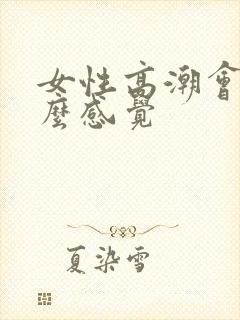 女性高潮會
麼感覺
夏染雪